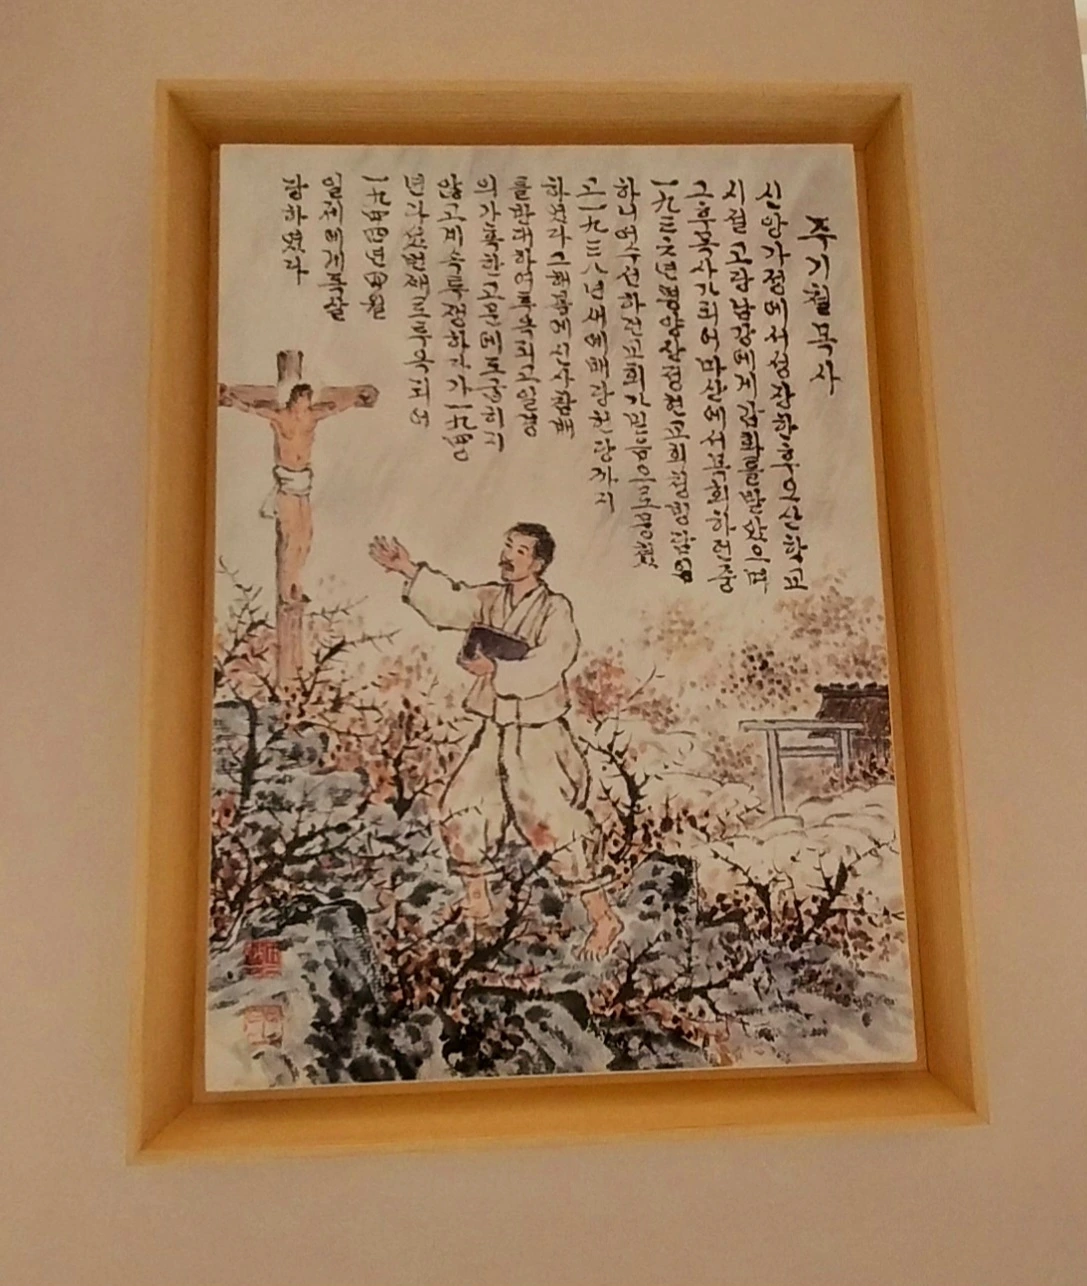 주기철 목사
신앙가정에서 성장한 후 오산학교
시절 고당 남강에게 감화를 받았으며
그후 목사가 되어 마산에서 목회하던 중
一九三六년 평양 산정현교회
믿음으로
고 一九三八년 까지
하였다 그해 봄에 신사참배
를 반대하여 투옥되고 일경
의 가혹한 고문에도 굽히지
않고 계속 투쟁하다가 一九四○
년 다섯번째로 투옥되어
一九四四년 四월
일제에게 독살
당하였다